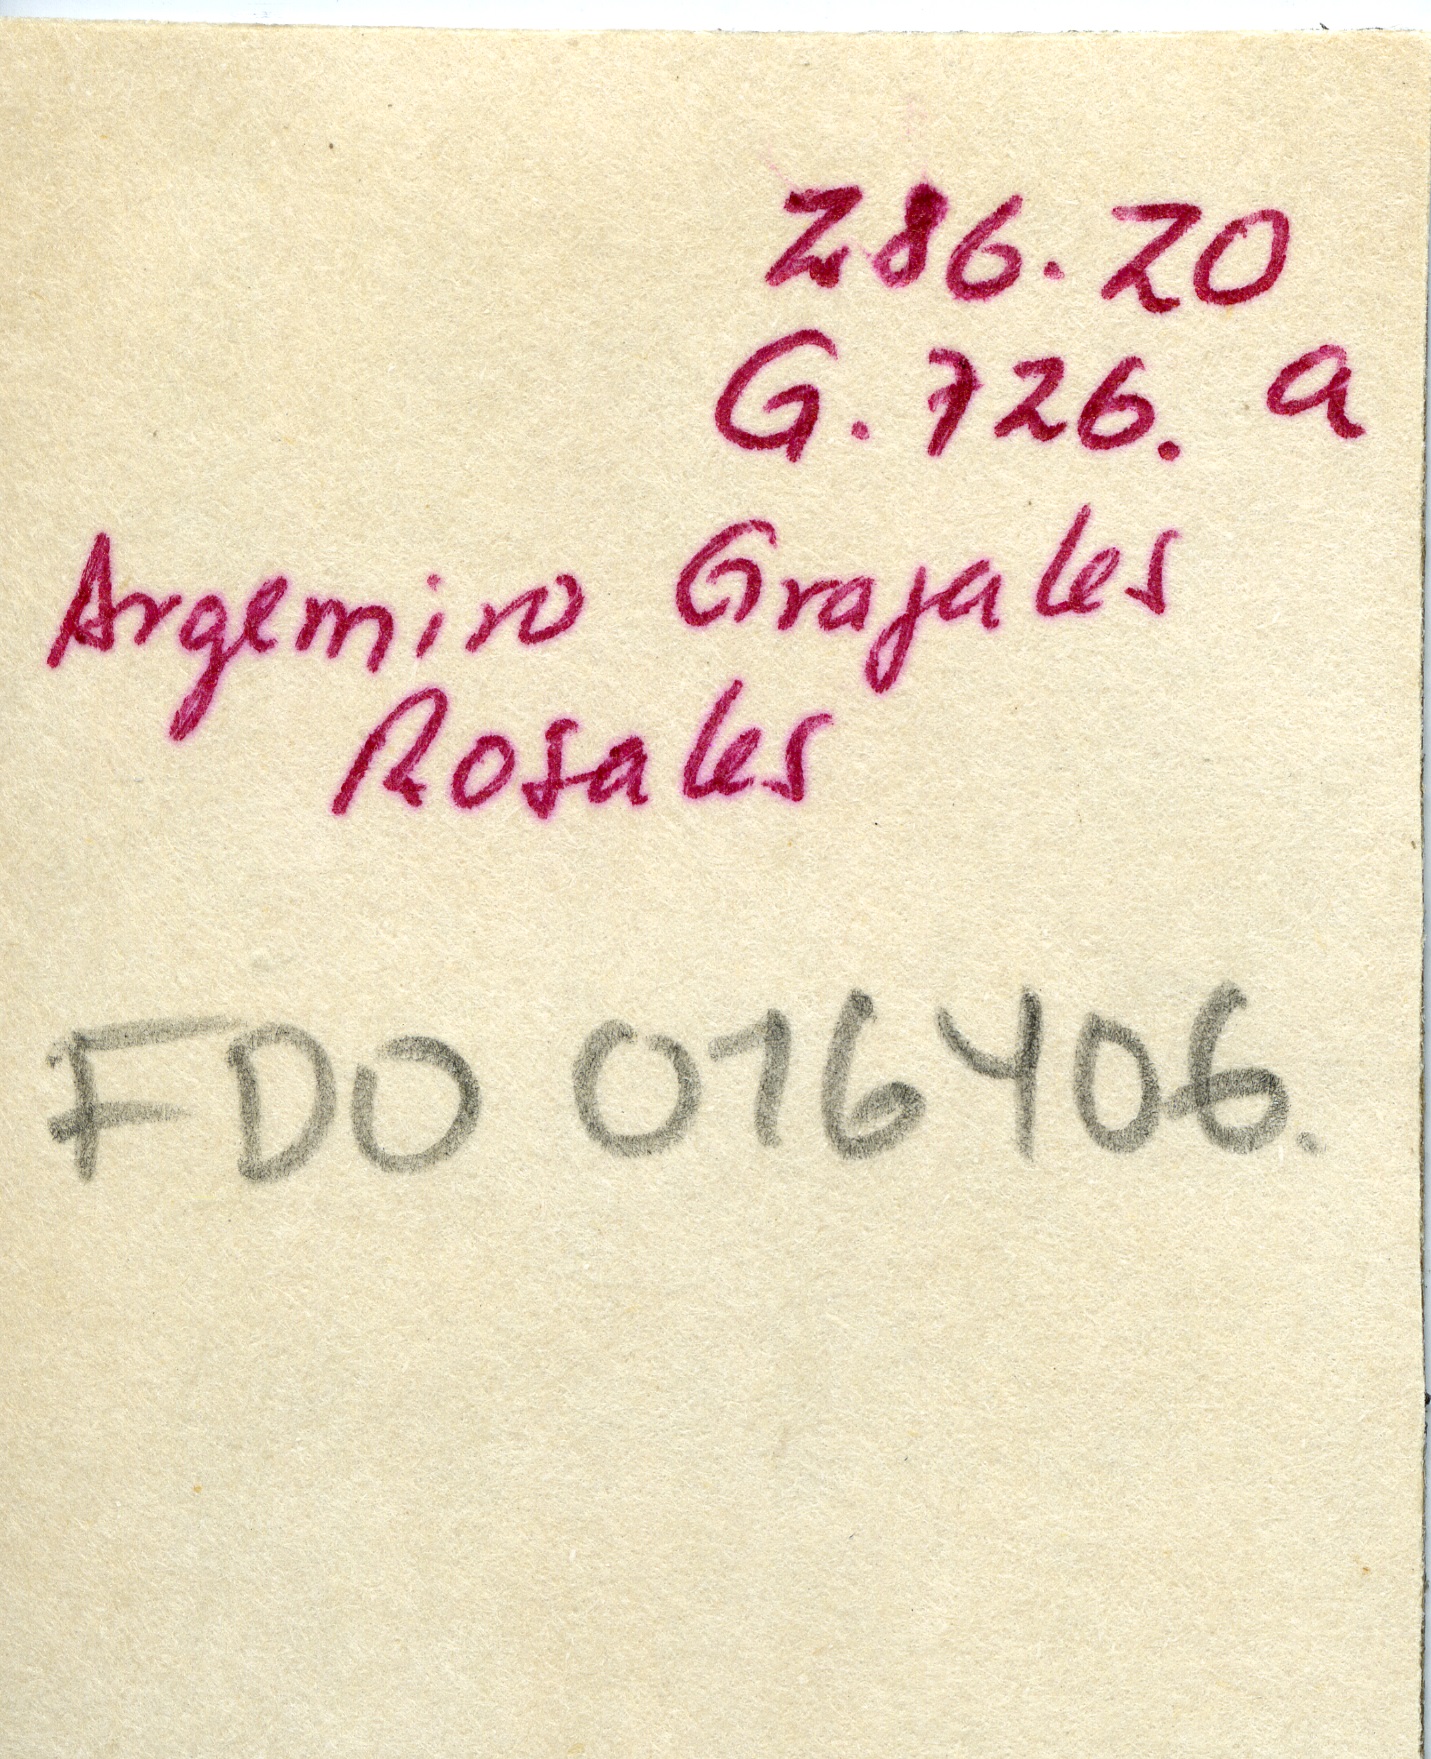 286.20
G.726. a
Argemiro Grajales
Rosales
FDO 016406.